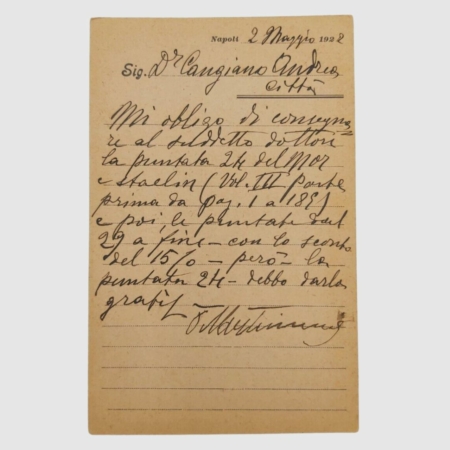 Napoli 2 Maggio 1922
Sig. Dr Cangiano Andrea
Città
Mi obligo di consegna=
re al suddetto dottore
la puntata 24 del Mor
e Staelin (Vol. III parte
prima da pag. 1 a
e poi, le puntate dal
29 a fine - con lo sconto
del 15% - però - la
puntata 24 - debbo darla
gratis